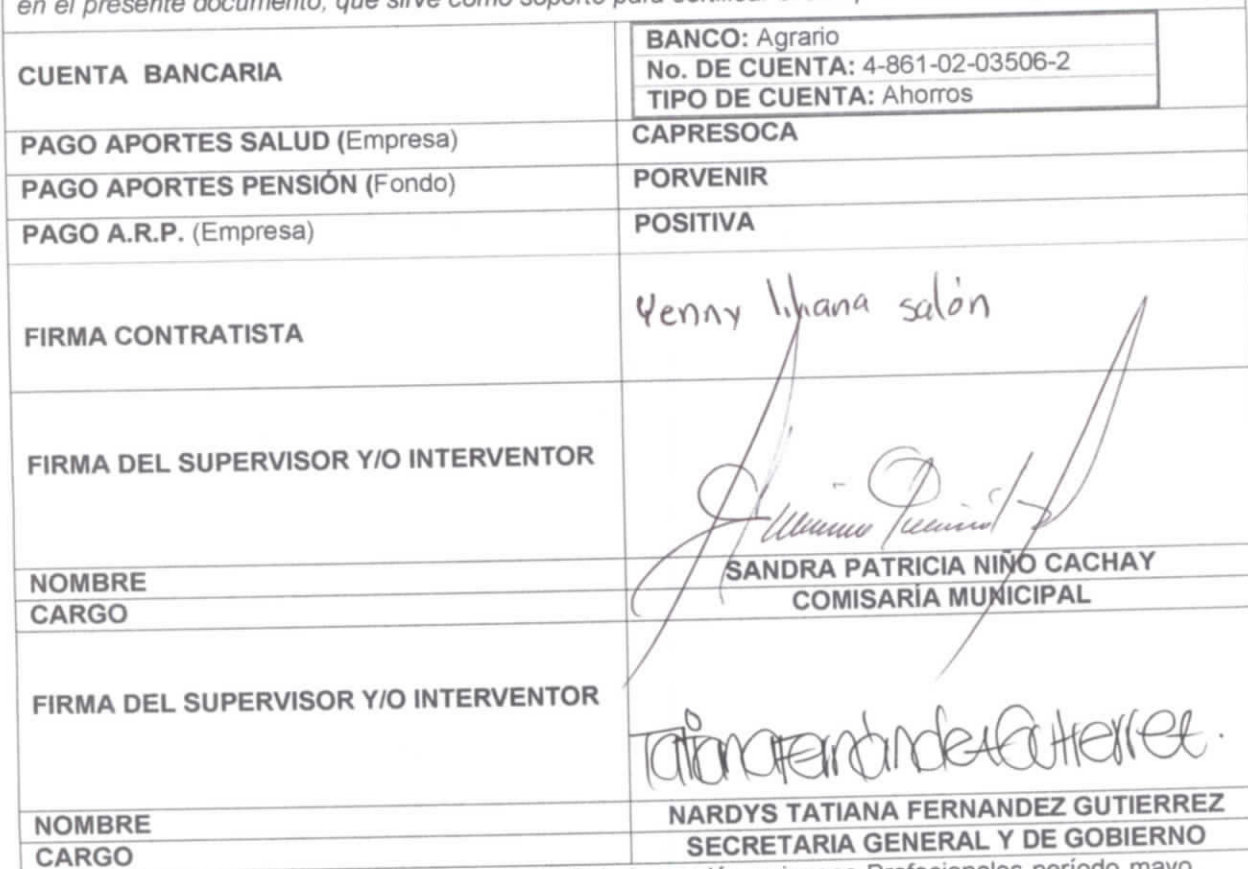 en el presente documento, que sirve como soporte para
CUENTA BANCARIA
BANCO: Agrario
No. DE CUENTA: 4-861-02-03506-2
TIPO DE CUENTA: Ahorros
PAGO APORTES SALUD (Empresa)
CAPRESOCA
PAGO APORTES PENSIÓN (Fondo)
PORVENIR
PAGO A.R.P. (Empresa)
POSITIVA
FIRMA CONTRATISTA
Yenny liliana salón
FIRMA DEL SUPERVISOR Y/O INTERVENTOR
NOMBRE
SANDRA PATRICIA NIÑO CACHAY
CARGO
COMISARÍA MUNICIPAL
FIRMA DEL SUPERVISOR Y/O INTERVENTOR
Tatiana Fernández Gutierrez.
NOMBRE
NARDYS TATIANA FERNANDEZ GUTIERREZ
CARGO
SECRETARIA GENERAL Y DE GOBIERNO
Profesionales período mayo